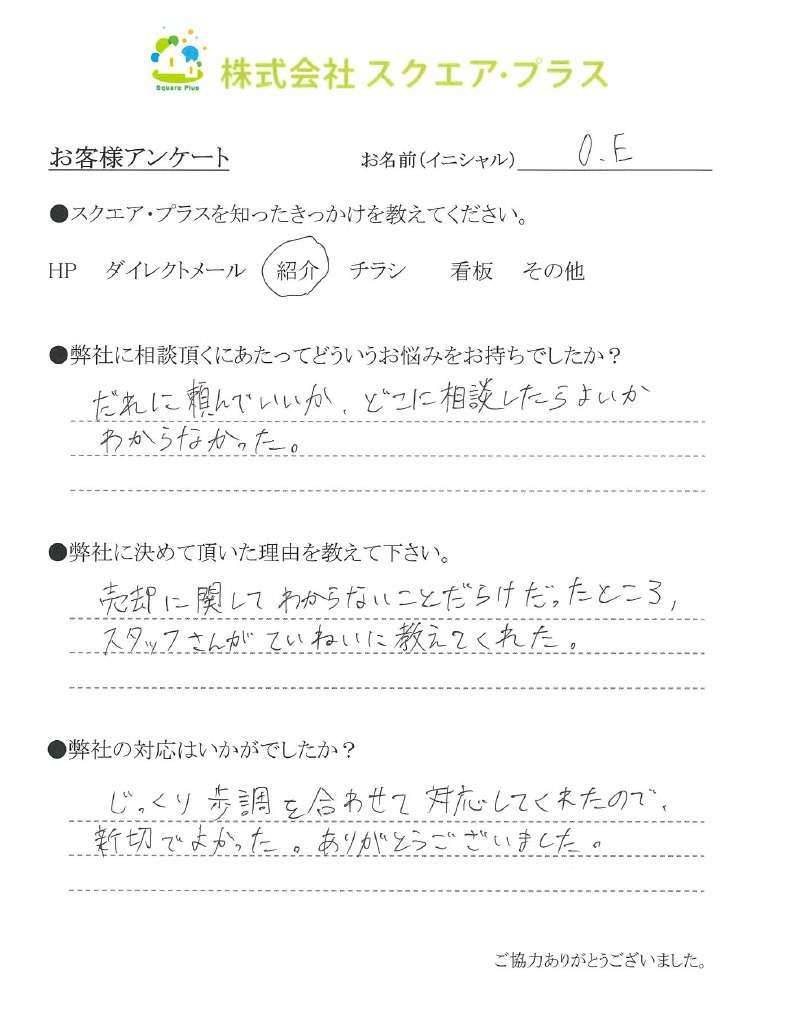 Square Plus
株式会社 スクエア・プラス
お客様アンケート お名前(イニシャル) O.E
●スクエア・プラスを知ったきっかけを教えてください。
HP ダイレクトメール 紹介 チラシ 看板 その他
●弊社に相談頂くにあたってどういうお悩みをお持ちでしたか？
だれに頼んでいいか、どこに相談したらよいか
わからなかった。
●弊社に決めて頂いた理由を教えて下さい。
売却に関してわからないことだらけだったところ、
スタッフさんがていねいに教えてくれた。
●弊社の対応はいかがでしたか？
じっくり歩調を合わせて対応してくれたので、
新切でよかった。ありがとうございました。
ご協力ありがとうございました。